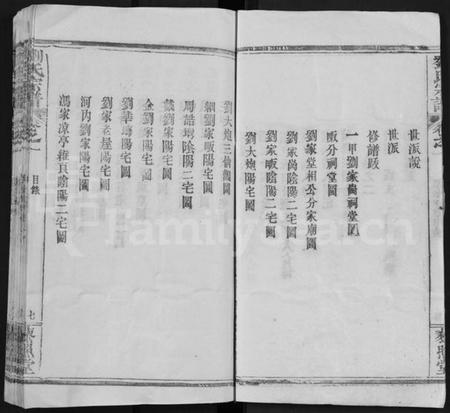 劉氏宗譜
世派說
世派
修譜跋
一甲劉家嵩祠堂圖
畈分祠堂圖
劉家堂相公分家廟圖
劉家嵩陰陽二宅圖
劉家畈陰陽二宅圖
劉大塊陽宅圖
劉大塊三仙觀圖
細劉家畈陽宅圖
周詰塆陰陽二宅圖
戴劉家陽宅圖
金劉家陽宅圖
劉華塆陽宅圖
劉家老屋陽宅圖
河內劉家陽宅圖
馮家涼亭維良陰陽二宅圖
目錄
七
藜照堂
FamilySearch